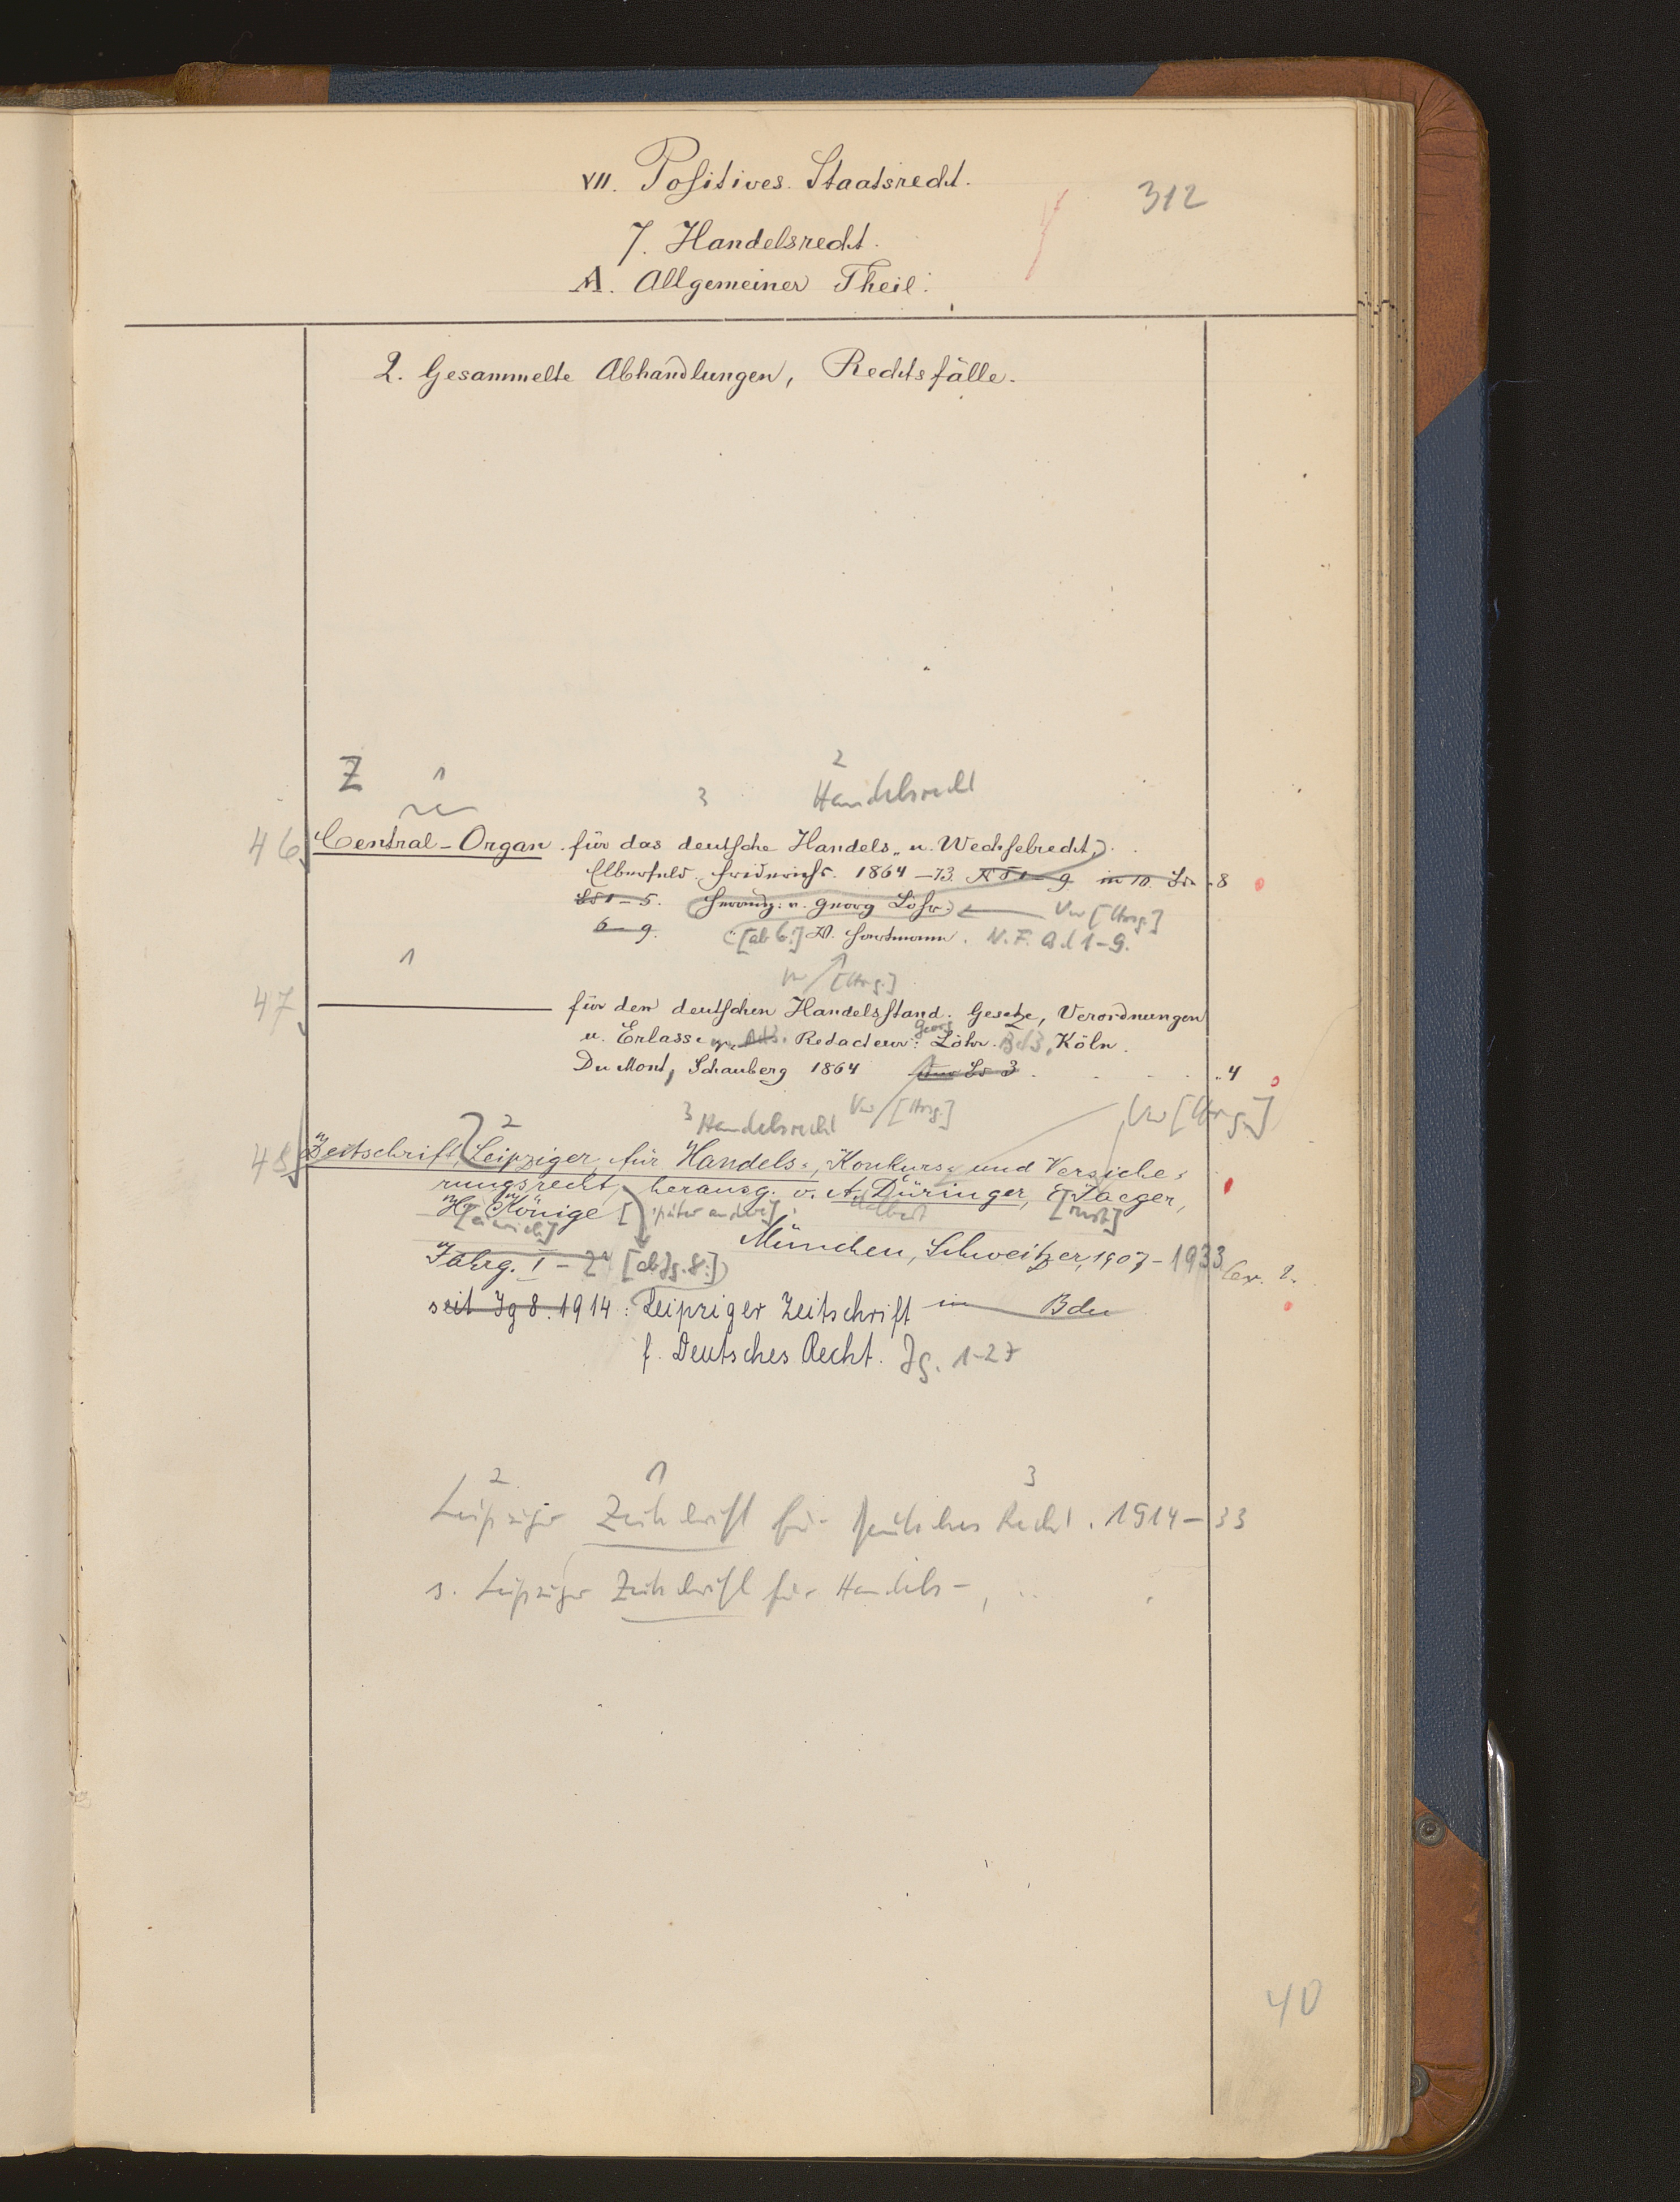 VII. Positives Staatsrecht.
312
7. Handelsrecht.
A. Allgemeiner Theil.
2. Gesammelte Abhandlungen, Rechtsfälle.
Z 1 3 2
Handelsrecht
46 Central-Organ für das deutsche Handels- u. Wechselrecht.
Elberfeld. Friderichs. 1864-73. N F 1-9 in 10 Bdn 8
Bd 1-5. Herausg. v. Georg Löhr. Vw [Hrsg.]
6-9. [ab 6.] D. Hartmann. N. F. Bd 1-9.
1
Vw [Hrsg.]
47 für den deutschen Handelsstand. Gesetze, Verordnungen
u. Erlasse Redacteur: Georg Löhr. Bd 3, Köln.
Du Mont, Schauberg 1864 Bd 3 4
2 3 Handelsrecht Vw [Hrsg.] Vw [Hrsg.]
48 Zeitschrift, Leipziger, für Handels-, Konkurs- und Versiche-
rungsrecht, herausg. v. A. Düringer, E. Jaeger,
H. Könige [später andere]. [Ernst]
[einrich]
München, Schweitzer, 1907-1933
Jahrg. I - [ab Jg. 8:]
seit Jg 8. 1914: Leipziger Zeitschrift in Bdn
f. Deutsches Recht. Jg. 1-27
2 1 3
Leipziger Zeitschrift für Deutsches Recht. 1914-33
s. Leipziger Zeitschrift für Handels-, ..
40